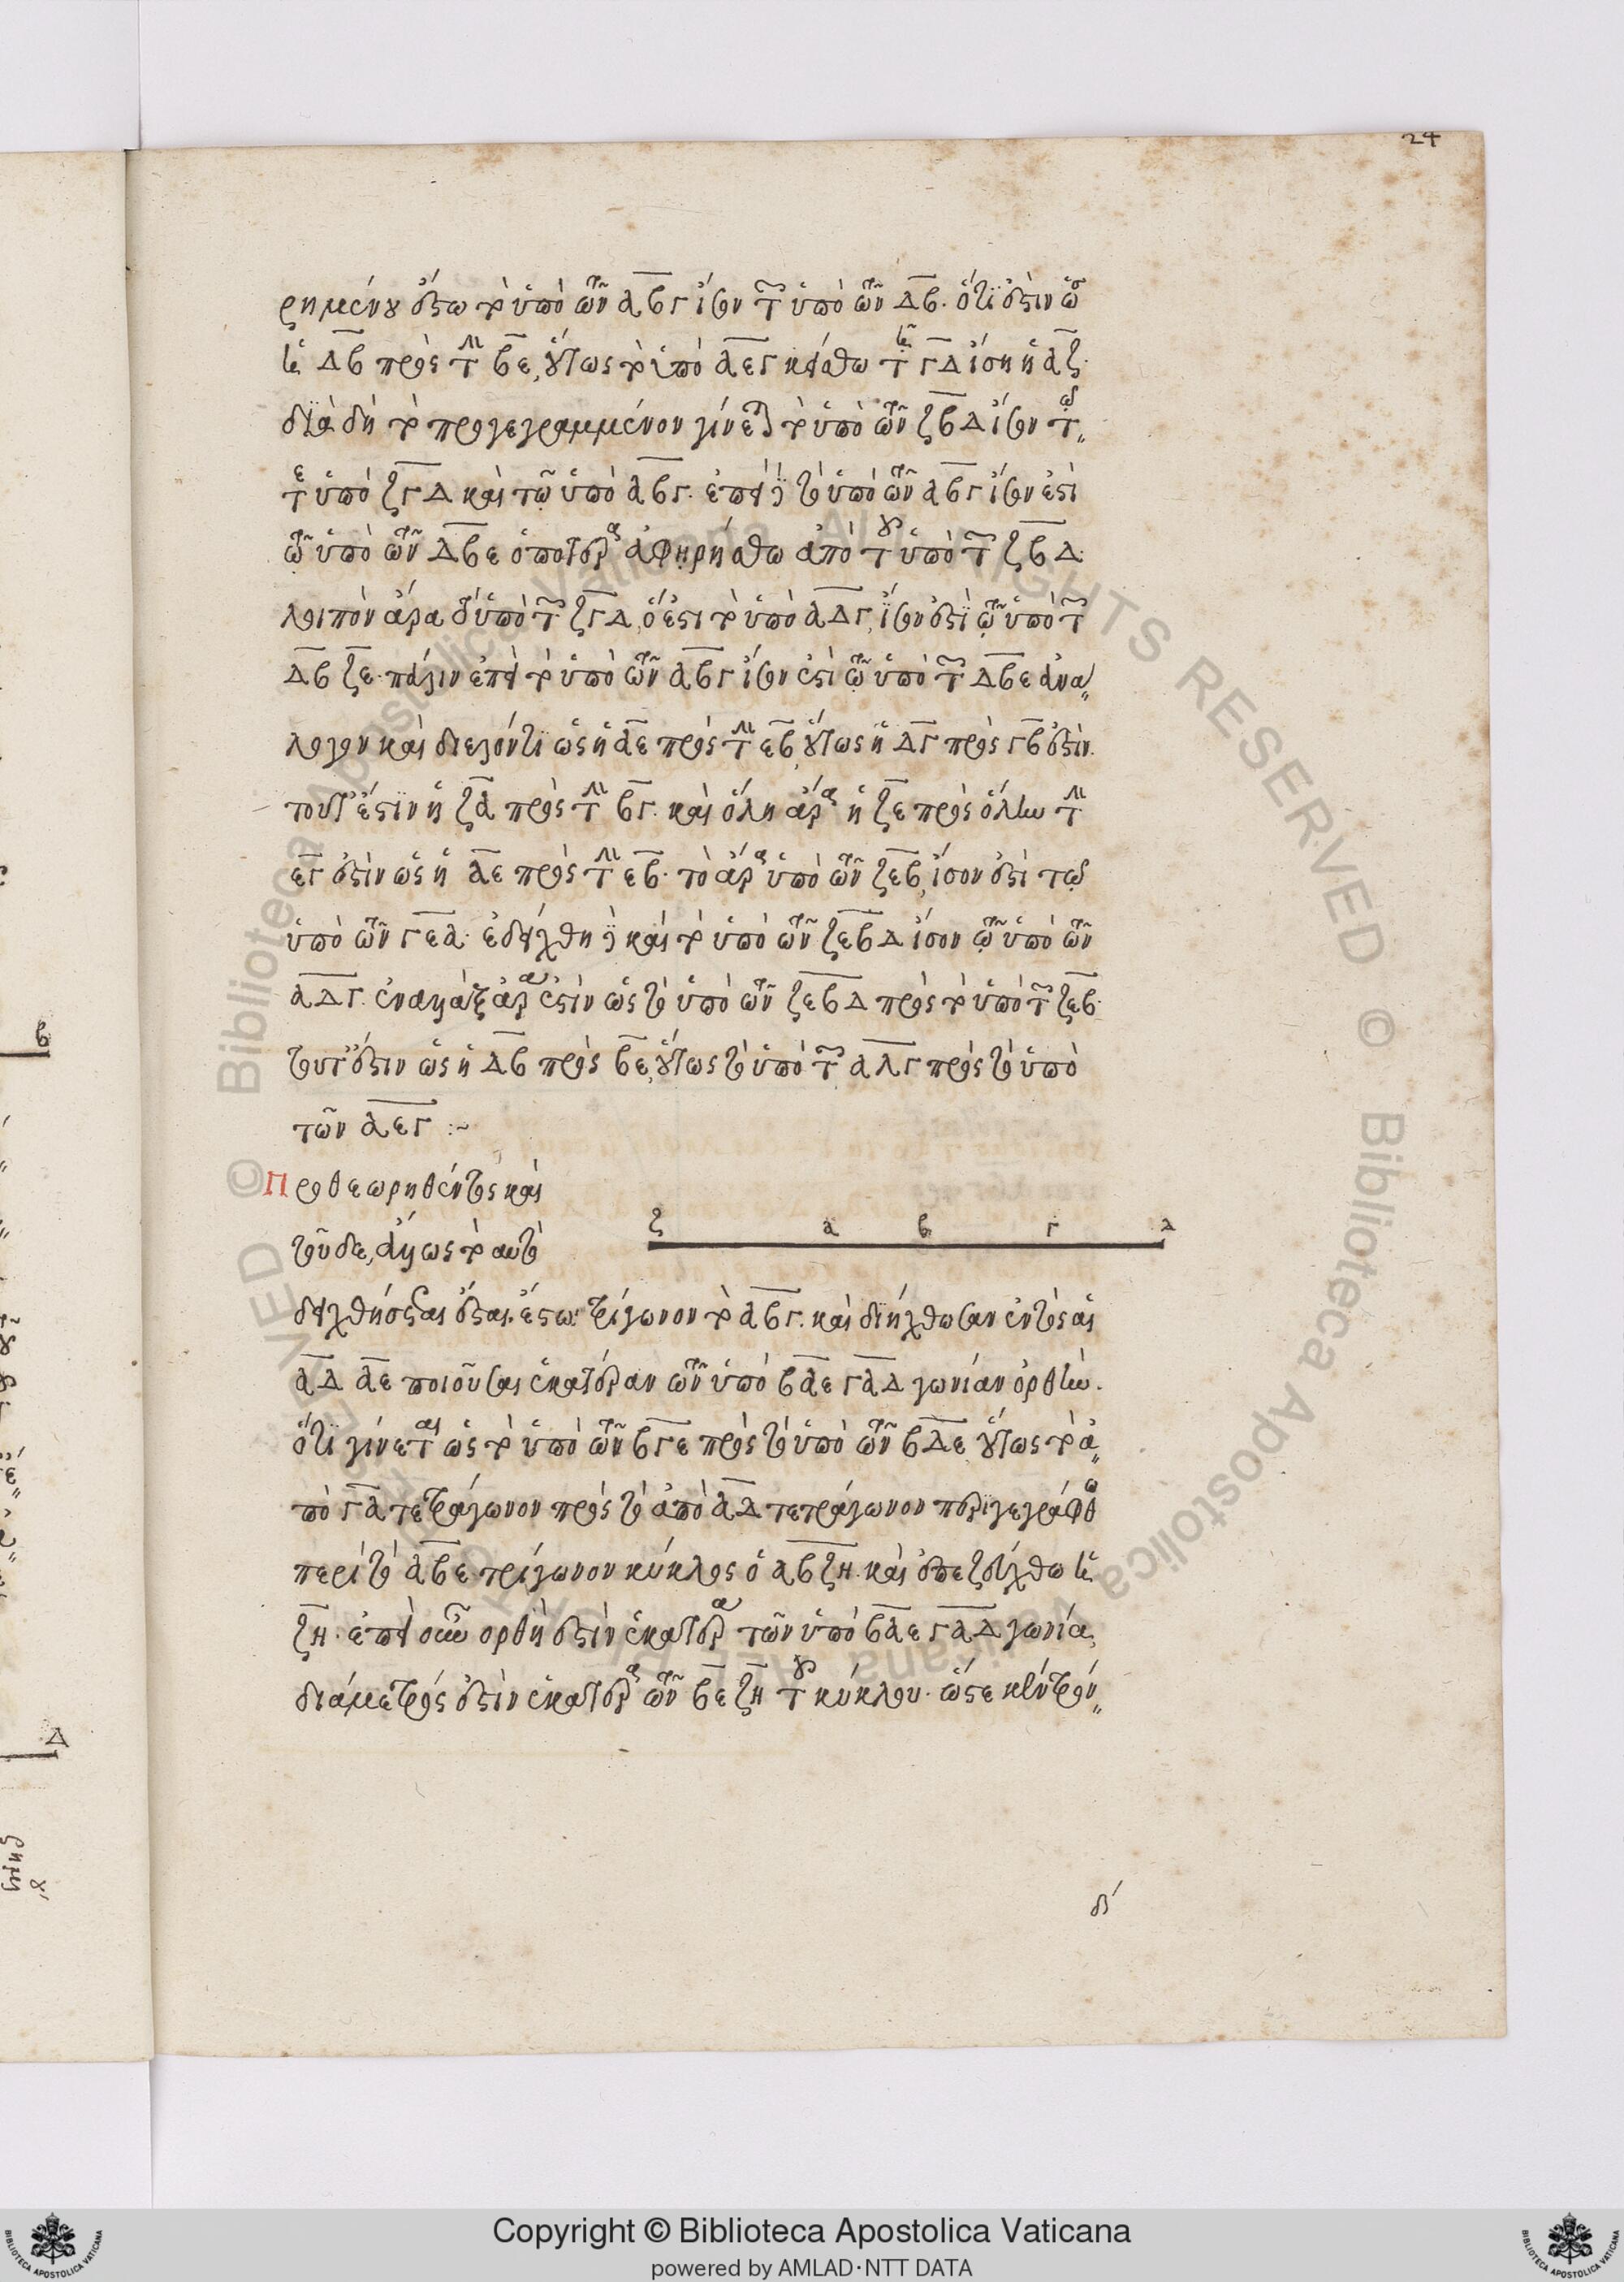 24
ρημένου ἔστω τὸ ὑπὸ τῶν ΑΒΓ ἴσον τῷ ὑπὸ τῶν ΔΒ. ὅτι ἐστὶν ὡς
ἡ ΔΒ πρὸς τὴν ΒΕ, οὕτως τὸ ὑπὸ ΑΕΓ κείσθω τῇ ΓΔ ἴση ἡ ΑΖ.
διὰ δὴ τὸ προγεγραμμένον γίνεται τὸ ὑπὸ τῶν ΖΒΔ ἴσον τῷ
τε ὑπὸ ΖΓΔ καὶ τῷ ὑπὸ ΑΒΓ. ἐπεὶ δὲ τὸ ὑπὸ τῶν ΑΒΓ ἴσον ἐστὶ
τῷ ὑπὸ τῶν ΔΒΕ ἀφῃρήσθω ἀπὸ τοῦ ὑπὸ τῶν ΖΒΔ.
λοιπὸν ἄρα τὸ ὑπὸ τῶν ΖΓΔ, ὅ ἐστι τὸ ὑπὸ ΑΔΓ, ἴσον ἐστὶ τῷ ὑπὸ τῶν
ΔΒ ΖΕ. πάλιν ἐπεὶ τὸ ὑπὸ τῶν ΑΒΓ ἴσον ἐστὶ τῷ ὑπὸ τῶν ΔΒΕ ἀνα
λογον καὶ διελόντι ὡς ἡ ΑΕ πρὸς τὴν ΕΒ, οὕτως ἡ ΔΓ πρὸς ΓΒ ἐστίν.
τουτέστιν ἡ ΖΑ πρὸς τὴν ΒΓ. καὶ ὅλη ἄρα ἡ ΖΕ πρὸς ὅλην τὴν
ΕΓ ἐστὶν ὡς ἡ ΑΕ πρὸς τὴν ΕΒ. τὸ ἄρα ὑπὸ τῶν ΖΕΒ, ἴσον ἐστὶ τῷ
ὑπὸ τῶν ΓΕΑ. ἐδείχθη δὲ καὶ τὸ ὑπὸ τῶν ΖΕΒΔ ἴσον τῷ ὑπὸ τῶν
ΑΔΓ. ἐναλλὰξ ἄρα ἐστὶν ὡς τὸ ὑπὸ τῶν ΖΕΒΔ πρὸς τὸ ὑπὸ τῶν ΖΕΒ.
τουτέστιν ὡς ἡ ΔΒ πρὸς ΒΕ, οὕτως τὸ ὑπὸ τῶν ΑΔΓ πρὸς τὸ ὑπὸ
τῶν ΑΕΓ :~
Προθεωρηθέντος καὶ
τοῦδε, ἄλλως τὸ αὐτὸ
Ζ Α Β Γ Δ
δειχθήσεσθαι ἔσται. ἔστω τρίγωνον τὸ ΑΒΓ. καὶ διήχθωσαν ἐντὸς αἱ
ΑΔ ΑΕ ποιοῦσαι ἑκατέραν τῶν ὑπὸ ΒΑΕ ΓΑΔ γωνίαν ὀρθήν.
ὅτι γίνεται ὡς τὸ ὑπὸ τῶν ΒΓΕ πρὸς τὸ ὑπὸ τῶν ΒΔΕ, οὕτως τὸ ἀ
πὸ ΓΑ τετράγωνον πρὸς τὸ ἀπὸ ΑΔ τετράγωνον περιγεγράφθω
περὶ τὸ ΑΒΕ τρίγωνον κύκλος ὁ ΑΒΖΗ. καὶ ἐπεζεύχθω ἡ
ΖΗ. ἐπεὶ οὖν ὀρθή ἐστιν ἑκατέρα τῶν ὑπὸ ΒΑΕ ΓΑΔ γωνία,
διάμετρός ἐστιν ἑκατέρα τῶν ΒΕ ΖΗ τοῦ κύκλου. ὥστε κέντρόν
δ΄